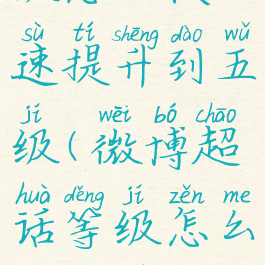 sù tí shēng dào wǔ
速提升到五
jí wēi bó chāo
级(微博超
huà děng jí zěn me
话等级怎么